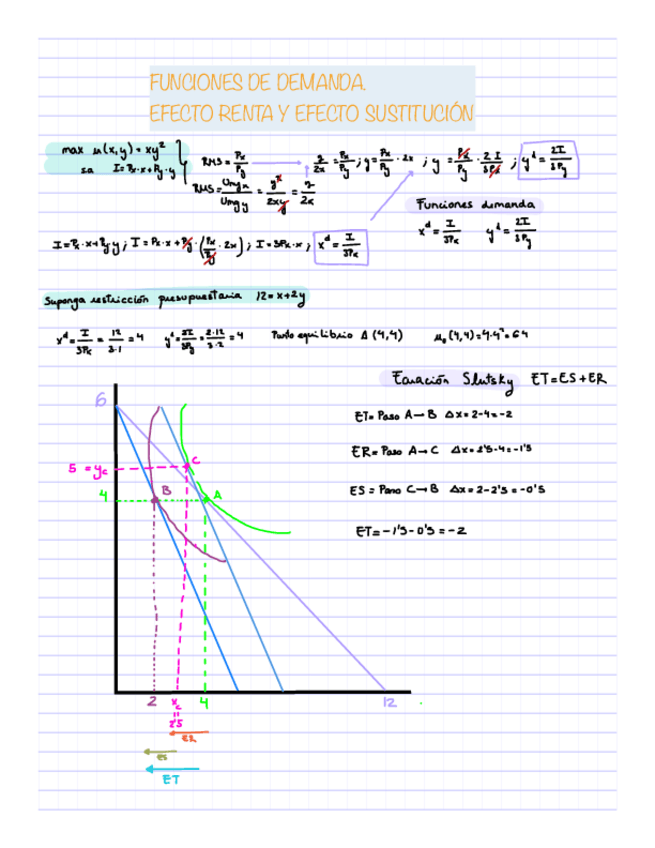 FUNCIONES DE DEMANDA.
EFECTO RENTA Y EFECTO SUSTITUCIÓN
max u(x,y) = xy²
sa I = Px·x + Py·y
RMS = Px/Py
y/2x = Px/Py ; y = Px/Py · 2x ; y = Px/Py · 2I/3Px ; yᵈ = 2I/3Py
RMS = Umgx/Umgy = y²/2xy = y/2x
Funciones demanda
xᵈ = I/3Px yᵈ = 2I/3Py
I = Px·x + Py·y ; I = Px·x + Py·(Px/Py · 2x) ; I = 3Px·x ; xᵈ = I/3Px
Suponga restricción presupuestaria 12 = x + 2y
xᵈ = I/3Px = 12/3·1 = 4 yᵈ = 2I/3Py = 2·12/3·2 = 4 Punto equilibrio A (4,4) u₀(4,4) = 4·4² = 64
Ecuación Slutsky ET = ES + ER
ET = Paso A → B Δx = 2-4 = -2
ER = Paso A → C Δx = 2'5-4 = -1'5
ES = Paso C → B Δx = 2-2'5 = -0'5
ET = -1'5-0'5 = -2
6
5 = yc
C
4
B
A
2
xc
4
12
"
2'5
ER
ES
ET